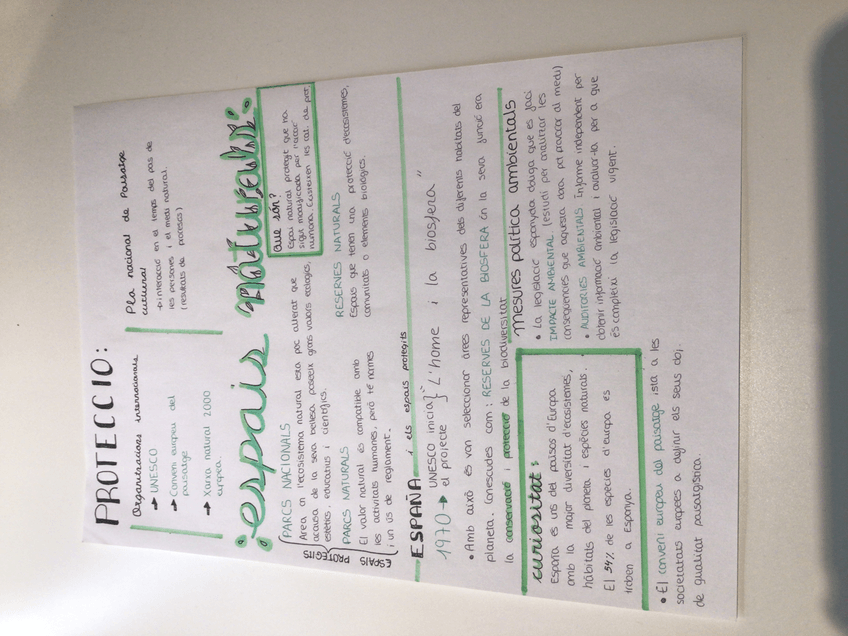 PROTECCIÓ:
Organitzacions internacionals
→ UNESCO
→ Conveni europeu del
paisatge
→ Xarxa natural 2000
europea.
Pla nacional de Paisatge
cultural
interacció en el temps del pas de
les persones i el medi natural.
(resultats de procesos)
espais naturals
que són?
Espai natural protegit que no
sigui modificada per l'acció
humana. Existeixen les cat. de prot
ESPAIS PROTEGITS
PARCS NACIONALS
Àrea on l'ecosistema natural esta poc alterat que
acausa de la seva bellesa poseeix grans valors ecologics,
estètics, educatius i científics.
PARCS NATURALS
El valor natural és compatible amb
les activitats humanes, però té normes
i un ús de reglament.
RESERVES NATURALS
Espais que tenen una protecció d'ecosistemes,
comunitats o elements biològics.
ESPAÑA i els espais protegits
1970 → UNESCO inicia
el projecte } "L'home i la biosfera"
• Amb això es van seleccionar àrees representatives dels diferents hàbitats del
planeta. Conescudes com: RESERVES DE LA BIOSFERA on la seva funció era
la conservació i protecció de la biodiversitat
curiositat:
España es un del països d'Europa
amb la major diversitat d'ecosistemes,
hàbitats del planeta i espècies naturals.
El 54% de les espècies d'europa es
troben a Espanya.
mesures política ambientals
• La legislació espanyola obliga que es faci
IMPACTE AMBIENTAL (estudi per analitzar les
conseqüències que aquesta obra pot provocar al medi)
• AUDITORIES AMBIENTALS Informe independent per
obtenir informació ambiental i avaluar-la per a que
és compleixi la legislació vigent.
• El conveni europeu del paisatge insta a les
societatats europees a definir els seus obj.
de qualitat paisatgística.